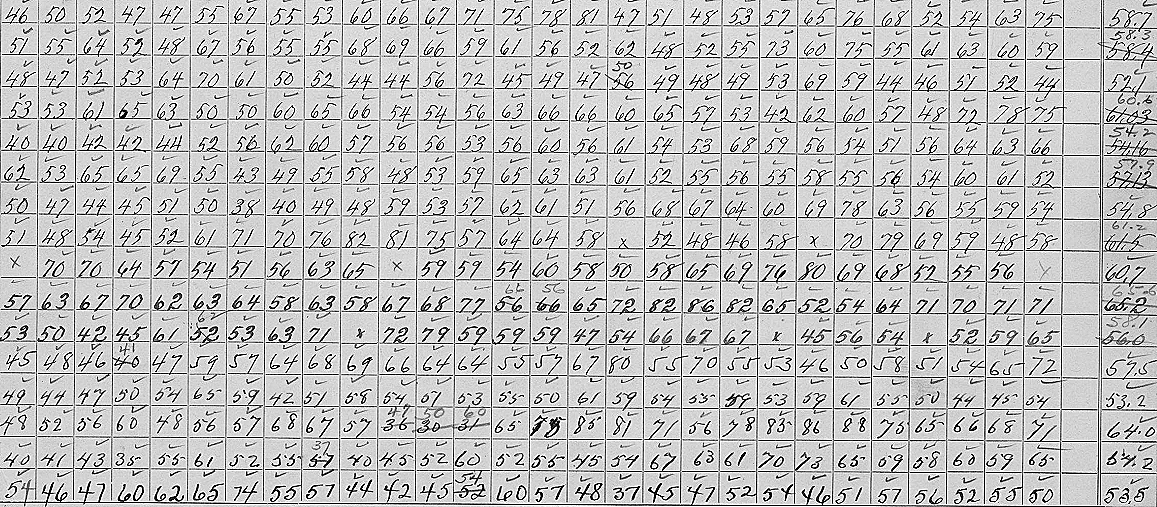 46 50 52 47 47 55 67 55 53 60 66 67 71 75 78 81 47 51 48 53 57 65 76 68 52 54 63 75 58.7
58.3
51 55 64 52 48 67 56 55 55 68 69 66 59 61 56 52 62 48 52 55 73 60 75 55 61 63 60 59 58.4
50
48 47 52 53 64 70 61 50 52 44 44 56 72 45 49 47 56 49 48 49 53 69 59 44 46 51 52 44 52.1
60.6
53 53 61 65 63 50 50 60 65 66 54 54 56 63 66 66 60 65 57 53 42 62 60 57 48 72 78 75
54.2
40 40 42 42 44 52 56 62 60 57 56 56 53 56 60 56 61 54 53 68 59 56 54 51 56 64 63 66 54.16
57.9
62 53 65 65 69 55 43 49 55 58 48 53 59 65 63 63 61 52 55 56 55 58 55 56 54 60 61 52 57.13
50 47 44 45 51 50 38 40 49 48 59 53 57 62 61 51 56 68 67 64 60 69 78 63 56 55 59 54 54.8
61.2
51 48 54 45 52 61 71 70 76 82 81 75 57 64 64 58 x 52 48 46 58 x 70 79 69 59 48 58 61.5
x 70 70 64 57 54 51 56 63 65 x 59 59 54 60 58 50 58 65 69 76 80 69 68 52 55 56 x 60.7
66 56
57 63 67 70 62 63 64 58 63 58 67 68 77 56 66 65 72 82 86 82 65 52 54 64 71 70 71 71 65.2
62 58.1
53 50 42 45 61 52 53 63 71 x 72 79 59 59 59 47 54 66 67 67 x 45 56 54 x 52 59 65 56.0
41
45 48 46 40 47 59 57 64 68 69 66 64 64 55 57 67 80 55 70 55 53 46 50 58 51 54 65 72 57.5
49 44 47 50 54 65 59 42 51 58 54 51 53 55 50 61 59 54 55 59 53 59 61 55 50 44 45 54 53.2
47 50 60
48 52 56 60 48 56 57 68 67 57 36 30 31 65 85 81 71 56 78 83 86 88 75 65 66 68 71 64.0
37
40 41 43 35 55 61 52 55 57 40 45 52 60 52 55 45 54 67 63 61 70 73 65 59 58 60 59 65 54.2
54
54 46 47 60 62 65 74 55 57 44 42 45 52 60 57 48 37 45 47 52 54 46 51 57 56 52 55 50 53.5